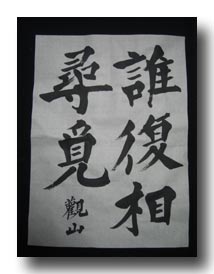 誰復相
尋覓
觀山